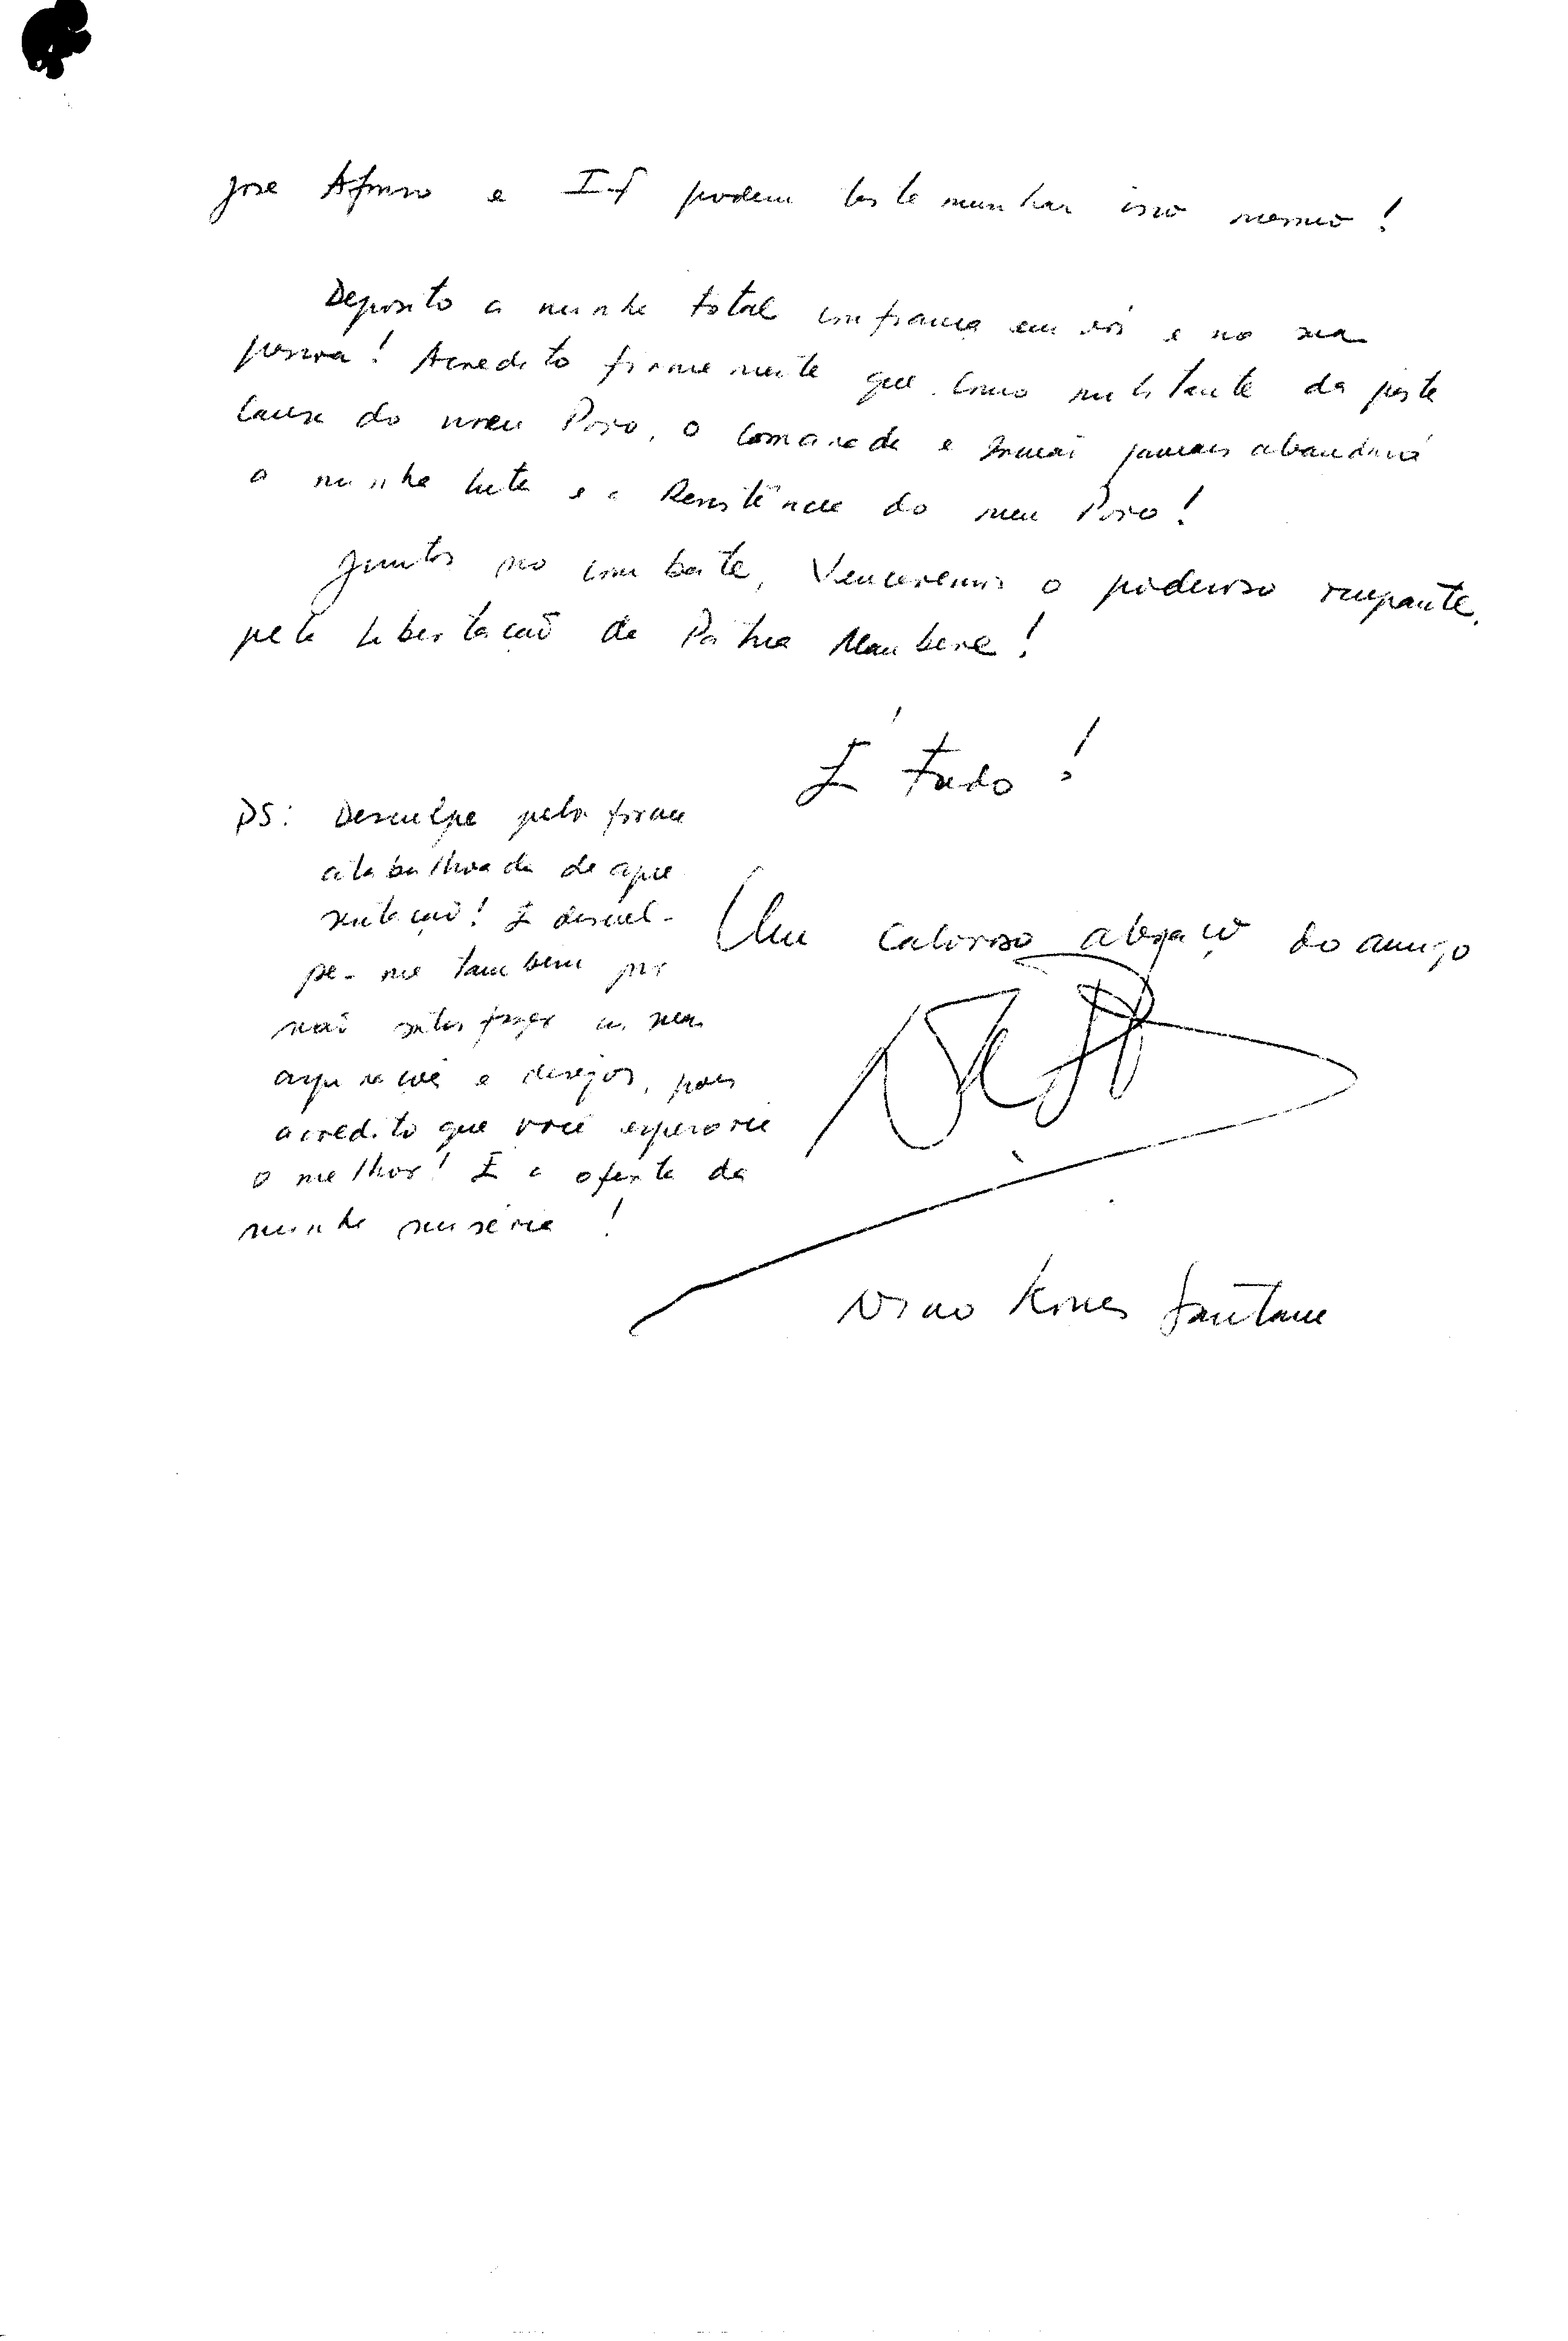 José Afonso e I-f podem testemunhar isso mesmo!
Deposito a minha total confiança em vós e na sua
pessoa! Acredito firmemente que, como militante da justa
causa do meu Povo, o camarada e irmão jamais abandona
a minha luta e a Resistência do meu Povo!
Juntos no combate, Venceremos o poderoso ocupante,
pela Libertação da Pátria Maubere!
É tudo!
PS: Desculpe pela forma
atabalhoada de apre
sentação! E descul-
pe-me também por
não satisfazer as suas
aspirações e desejos, pois
acredito que você esperaria
o melhor! É a oferta da
minha miséria!
Um caloroso abraço do amigo
Nino Konis Santana